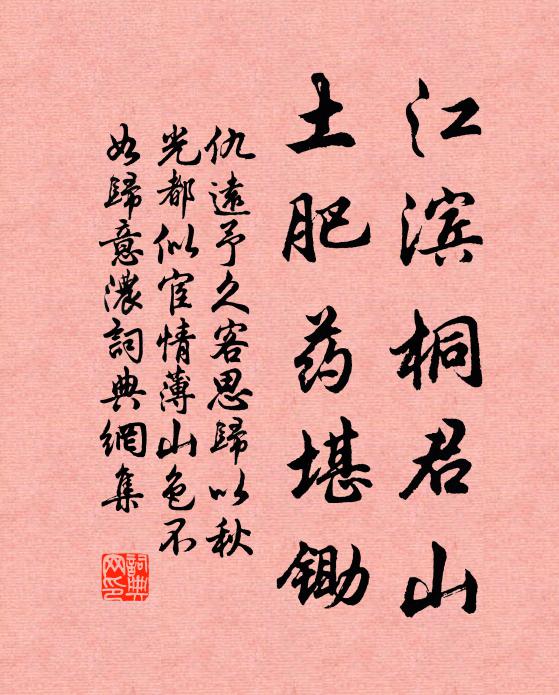 江滨桐君山
土肥药堪锄
仇遠予久客思歸以秋
光都似宦情薄山色不
如歸意濃詞典網集
詞典网印